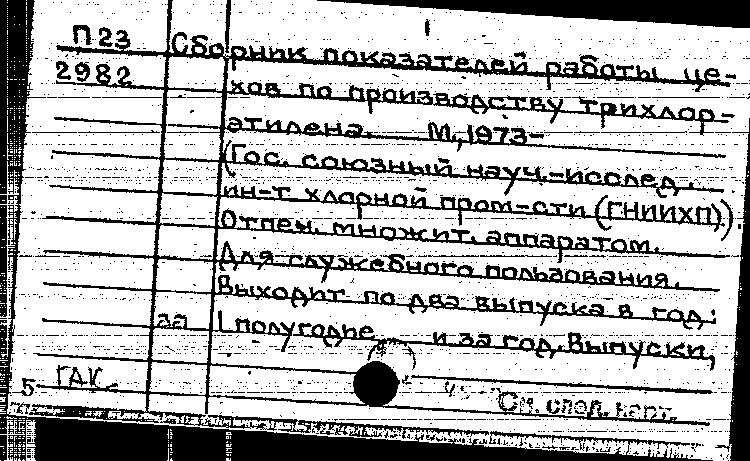 1
П23 Сборник показателей работы це-
2982 хов по производству трихлор-
этилена. М., 1973-
(Гос. союзный науч.-исслед.
ин-т хлорной пром-сти (ГНИИХП)).
Отпеч. множит. аппаратом.
Для служебного пользования.
Выходит по два выпуска в год:
за 1 полугодие и за год. Выпуски,
5- ГАК
См. след. карт.